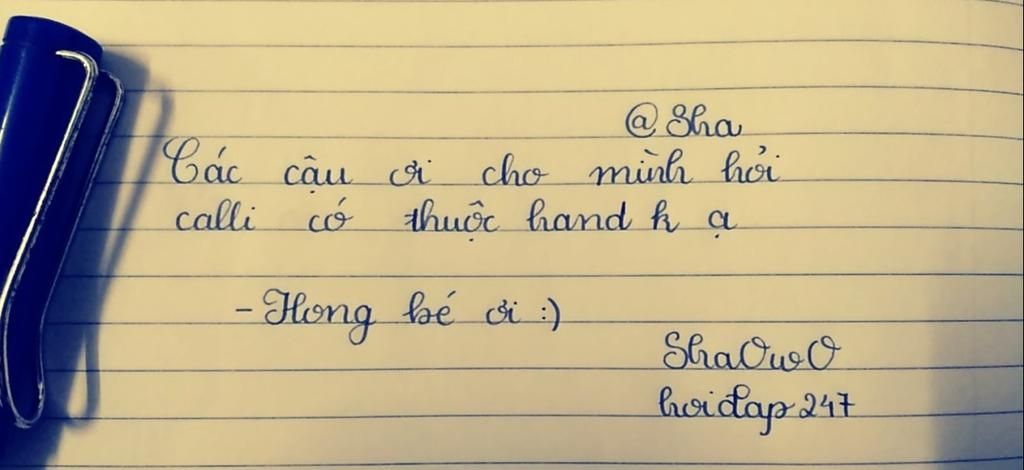 @ Sha
Các cậu ơi cho mình hỏi
calli có thuộc hand k ạ
- Hong bé ơi :)
ShaOwO
hoidap247